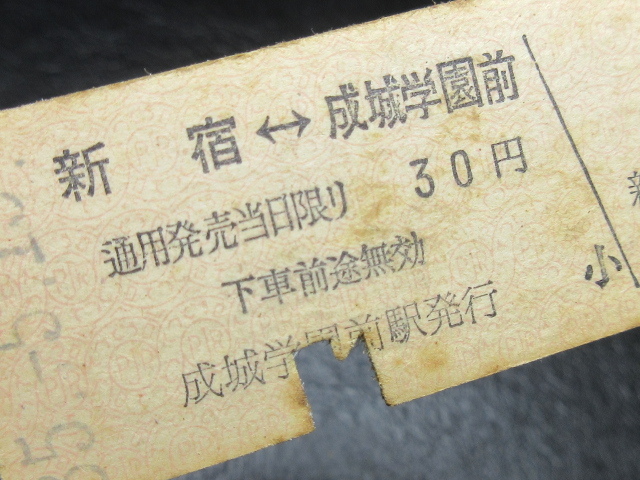 新宿↔成城学園前
通用発売当日限り 30円
下車前途無効
成城学園前駅発行
小
新